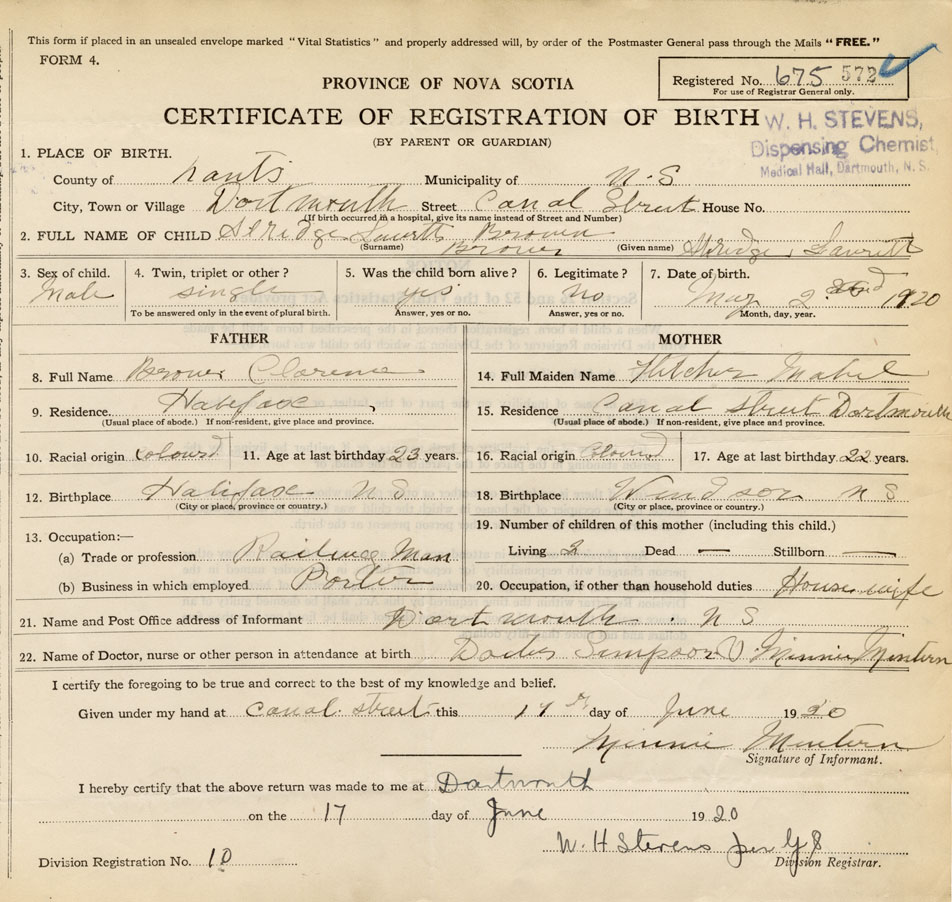 This form if placed in an unsealed envelope marked "Vital Statistics" and properly addressed will, by order of the Postmaster General pass through the Mails "FREE."
FORM 4.
Registered No. 675 572
For use of Registrar General only.
PROVINCE OF NOVA SCOTIA
CERTIFICATE OF REGISTRATION OF BIRTH
(BY PARENT OR GUARDIAN)
W. H. STEVENS,
Dispensing Chemist
Medical Hall, Dartmouth, N. S.
1. PLACE OF BIRTH.
County of Hants Municipality of N-S
City, Town or Village Dortmouth Street Canal Street House No.
(If birth occurred in a hospital, give its name instead of Street and Number)
2. FULL NAME OF CHILD Brown
(Surname) Brown (Given name)
3. Sex of child. 4. Twin, triplet or other? 5. Was the child born alive? 6. Legitimate? 7. Date of birth.
Male single yes no May 2 1920
To be answered only in the event of plural birth. Answer, yes or no. Answer, yes or no. Month, day, year.
FATHER MOTHER
8. Full Name Brown Clarence 14. Full Maiden Name Mabel
9. Residence. Halifax 15. Residence Canal street Dartmouth
(Usual place of abode.) If non-resident, give place and province. (Usual place of abode.) If non-resident, give place and province.
10. Racial origin Colourd 11. Age at last birthday 23 years. 16. Racial origin Colourd 17. Age at last birthday 22 years.
12. Birthplace Halifax N S 18. Birthplace Windsor N S
(City or place, province or country.) (City or place, province or country.)
13. Occupation:— 19. Number of children of this mother (including this child.)
(a) Trade or profession Man Living 2 Dead — Stillborn —
(b) Business in which employed Porter 20. Occupation, if other than household duties Housewife
21. Name and Post Office address of Informant Dartmouth N S
22. Name of Doctor, nurse or other person in attendance at birth Simpson Minnie Mintern
I certify the foregoing to be true and correct to the best of my knowledge and belief.
Given under my hand at Canal street this 17 th day of June 1920
Minnie Mintern
Signature of Informant.
I hereby certify that the above return was made to me at Dartmouth
on the 17 day of June 1920
W. H Stevens per
Division Registration No. 10 Division Registrar.